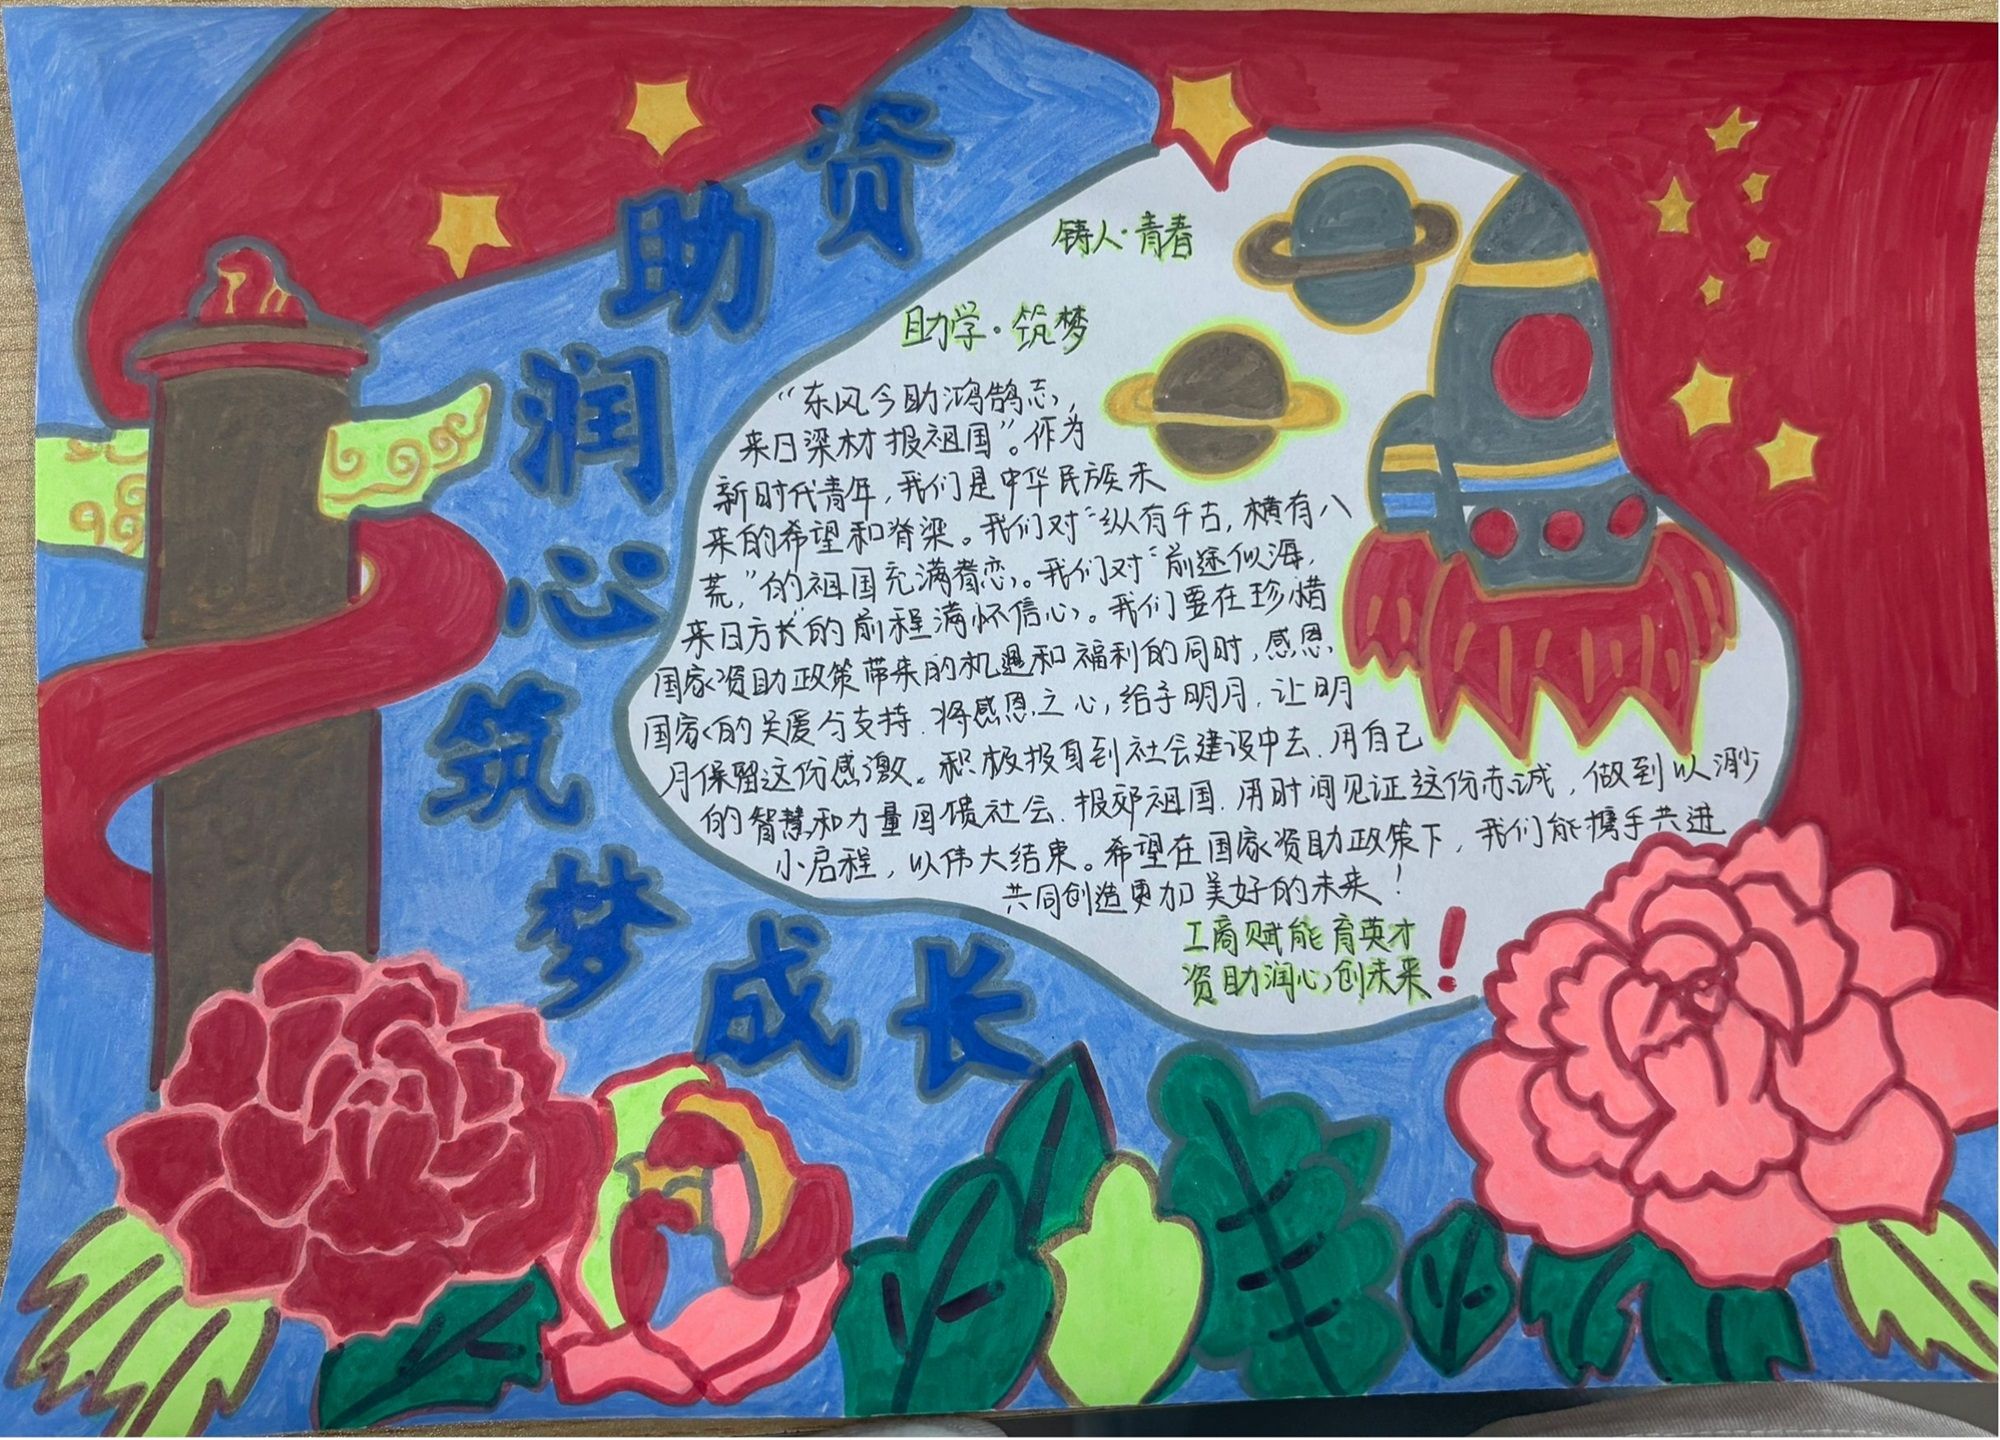 资助润心筑梦成长
铸人·青春
助学·筑梦
“东风今助鸿鹄志，
来日梁材报祖国”。作为
新时代青年，我们是中华民族未
来的希望和脊梁。我们对“纵有千古，横有八
荒，”的祖国充满眷恋。我们对“前途似海，
来日方长”的前程满怀信心。我们要在珍惜
国家资助政策带来的机遇和福利的同时，感恩
国家的关爱与支持.将感恩之心，给予明月.让明
月保留这份感激。积极投身到社会建设中去.用自己
的智慧和力量回馈社会.报郊祖国.用时间见证这份赤诚，做到以渺
小启程，以伟大结束。希望在国家资助政策下，我们能携手共进
共同创造更加美好的未来！
工商赋能育英才
资助润心创未来！